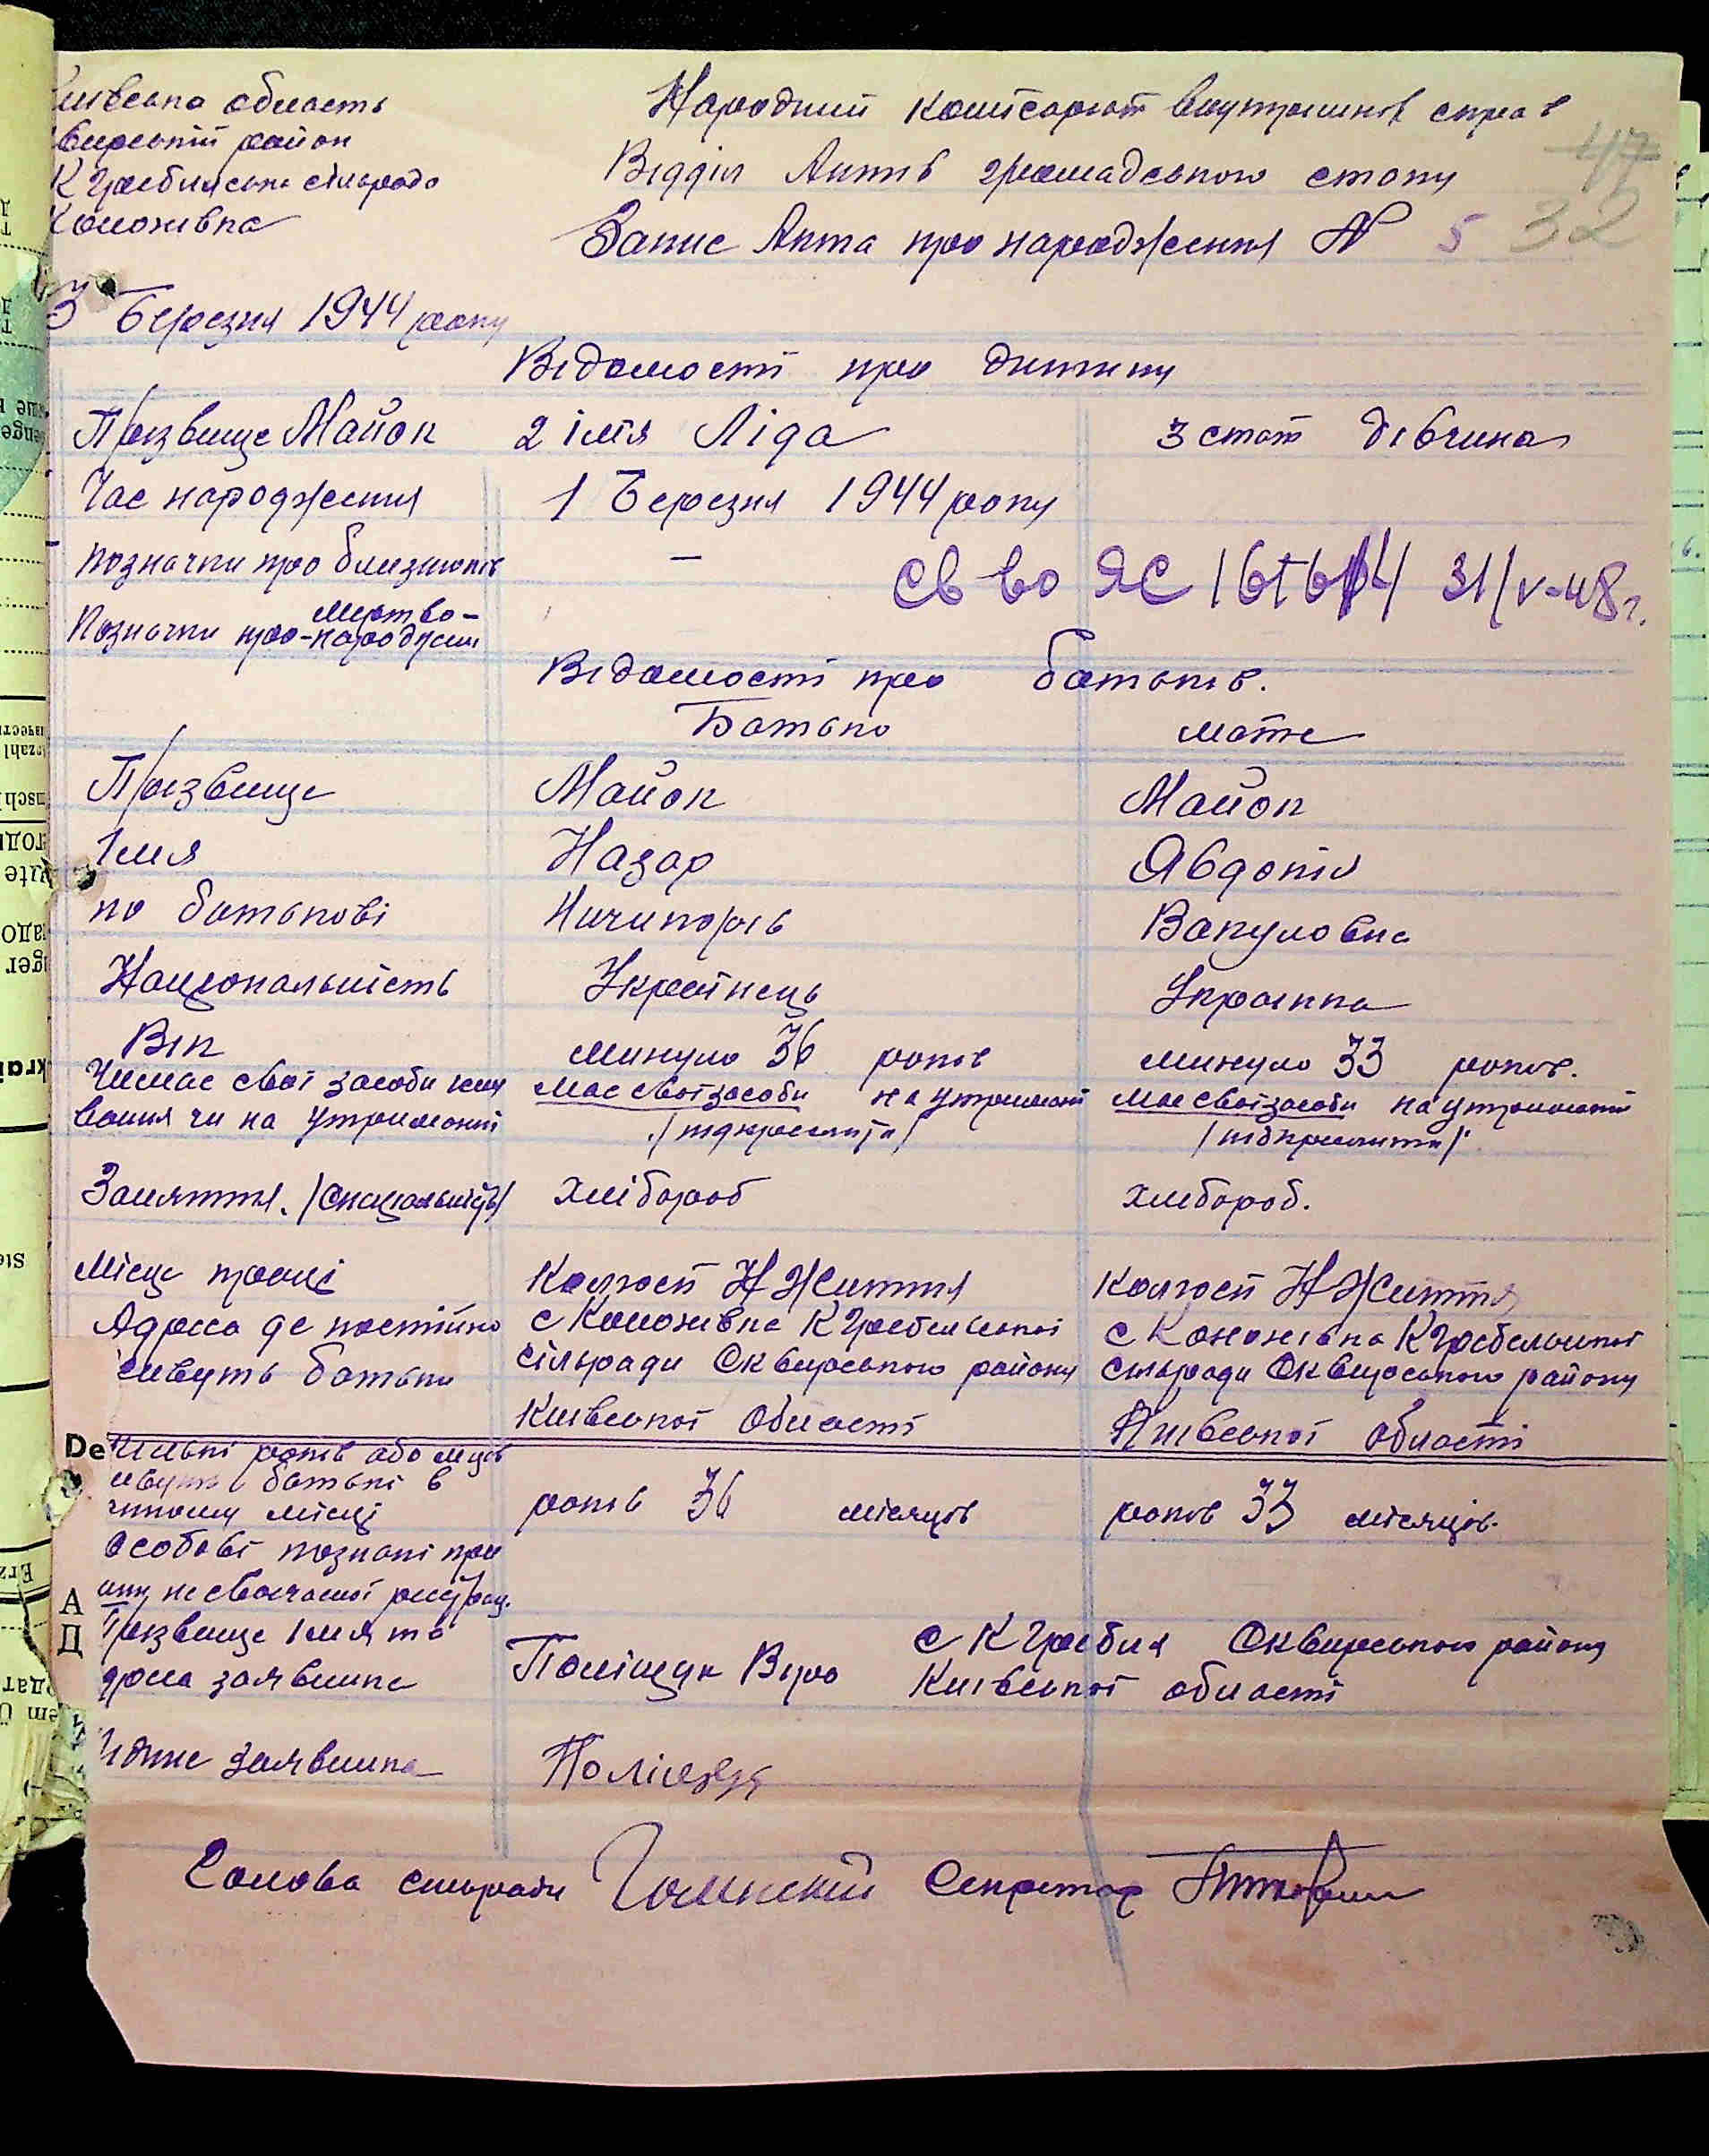 Київська область
Сквирський район
К Гребимська сільрада
Коможивка
Народний комісаріат внутрішніх справ
Відділ Актів громадського стану
Запис Акта про народження № 5
47
32
3 Березня 1944 року
Відомості про дитину
Прізвище Майок 2 імя Ліда 3 стат дівчина
Час народження 1 Березня 1944 року
Позначки про близнюків —
Св во ЯС 31/V-48 г.
Позначки про мертво-народжен
Відомості про батьків.
Батько мати
Прізвище Майок Майок
Імя Назар Явдокія
по батькові Ничипорів Вакуловна
Національність Українець Українка
Вік минуло 36 років минуло 33 років.
Чи має свої засоби існу має свої засоби на утриманні має свої засоби на утриманні
вання чи на утриманні /підкреслити/ /підкреслити/
Заняття. /спеціальність/ хлібороб хлібороб.
Місце праці Колгосп Н Життя Колгосп Н Життя
Адреса де постійно с Коможівка К Гребельської с Коможівка К Гребельської
живуть батьки сільради Сквирського району сільради Сквирського району
Київської Області Київської Області
De
кільки років або міся
живуть батьки в
чиному місці років 36 місяців років 33 місяців.
особові познакі при
чину несвоєчасної реєстрац.
А
Д
Прізвище імя та с К Гребля Сквирського району
адреса заявника Поліщук Віра Київської області
Підпис заявника Поліщук
Голова сільради Секретар